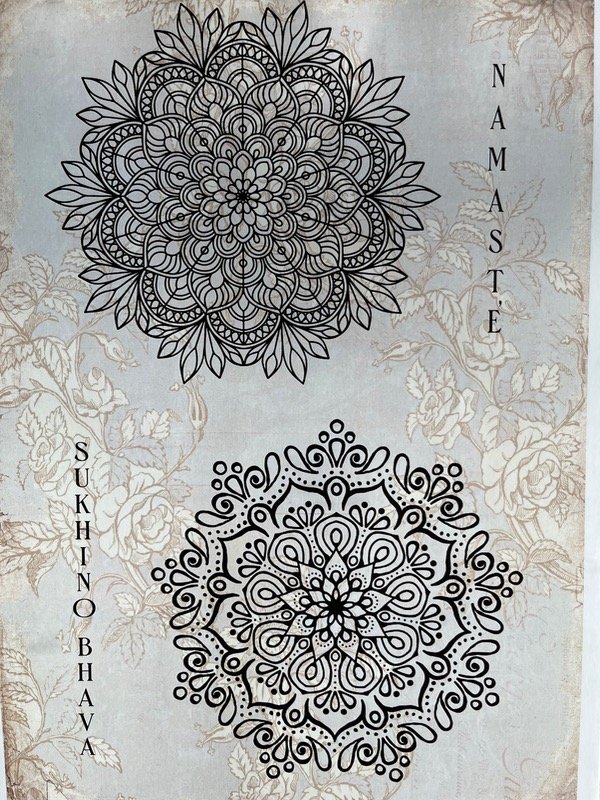 NAMASTÉ
SUKHINO BHAVA